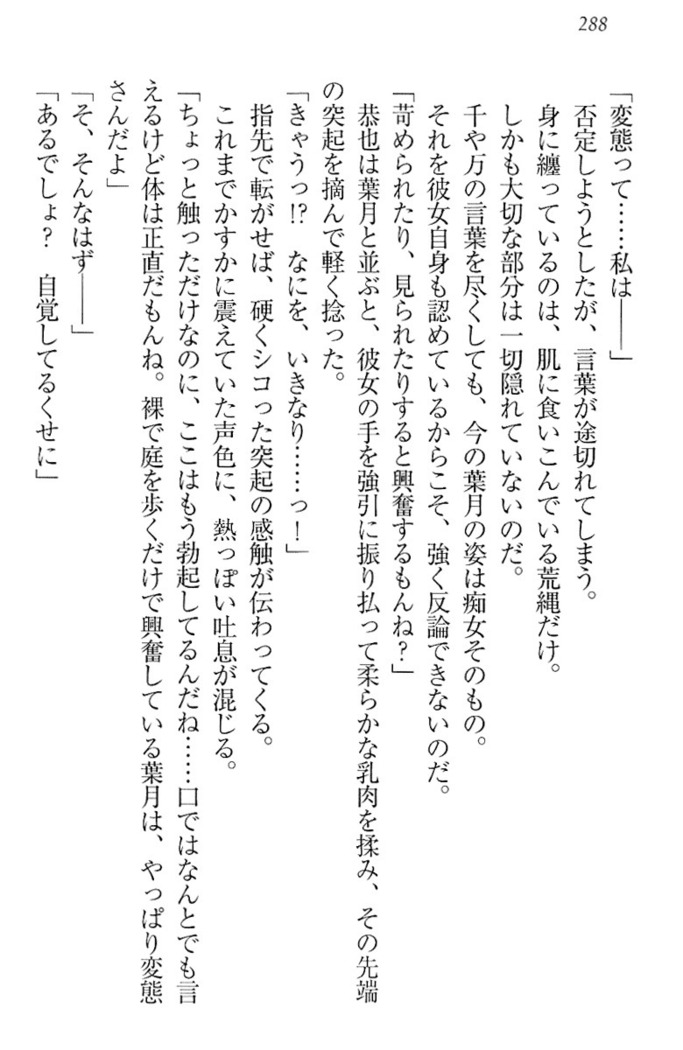 288
「変態って……私は――」
否定しようとしたが、言葉が途切れてしまう。
身に纏っているのは、肌に食いこんでいる荒縄だけ。
しかも大切な部分は一切隠れていないのだ。
千や万の言葉を尽くしても、今の葉月の姿は痴女そのもの。
それを彼女自身も認めているからこそ、強く反論できないのだ。
「苛められたり、見られたりすると興奮するもんね？」
恭也は葉月と並ぶと、彼女の手を強引に振り払って柔らかな乳肉を揉み、その先端
の突起を摘んで軽く捻った。
「きゃうっ!?　なにを、いきなり……っ！」
指先で転がせば、硬くシコった突起の感触が伝わってくる。
これまでかすかに震えていた声色に、熱っぽい吐息が混じる。
「ちょっと触っただけなのに、ここはもう勃起してるんだね……口ではなんとでも言
えるけど体は正直だもんね。裸で庭を歩くだけで興奮している葉月は、やっぱり変態
さんだよ」
「そ、そんなはず――」
「あるでしょ？　自覚してるくせに」